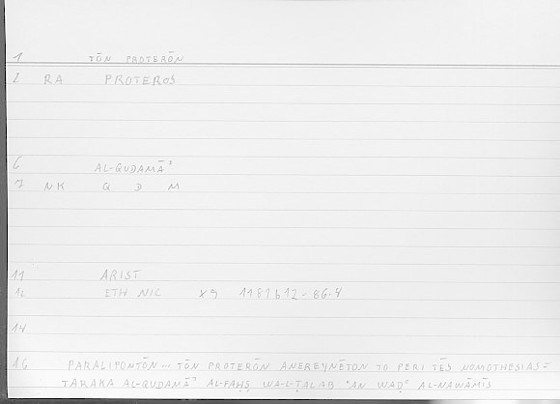 1 TŌN PROTERŌN
2 RA PROTEROS
6 AL-QUDAMĀʾ
7 NK Q D M
11 ARIST
12 ETH NIC X9 1181b12-
14
16 PARALIPONTŌN … TŌN PROTERŌN ANEREYNĒTON TO PERI TĒS NOMOTHESIAS =
TARAKA AL-QUDAMĀʾ AL-FAḤṢ WA-L-ṬALAB ʿAN WAḌʿ AL-NAWĀMĪS